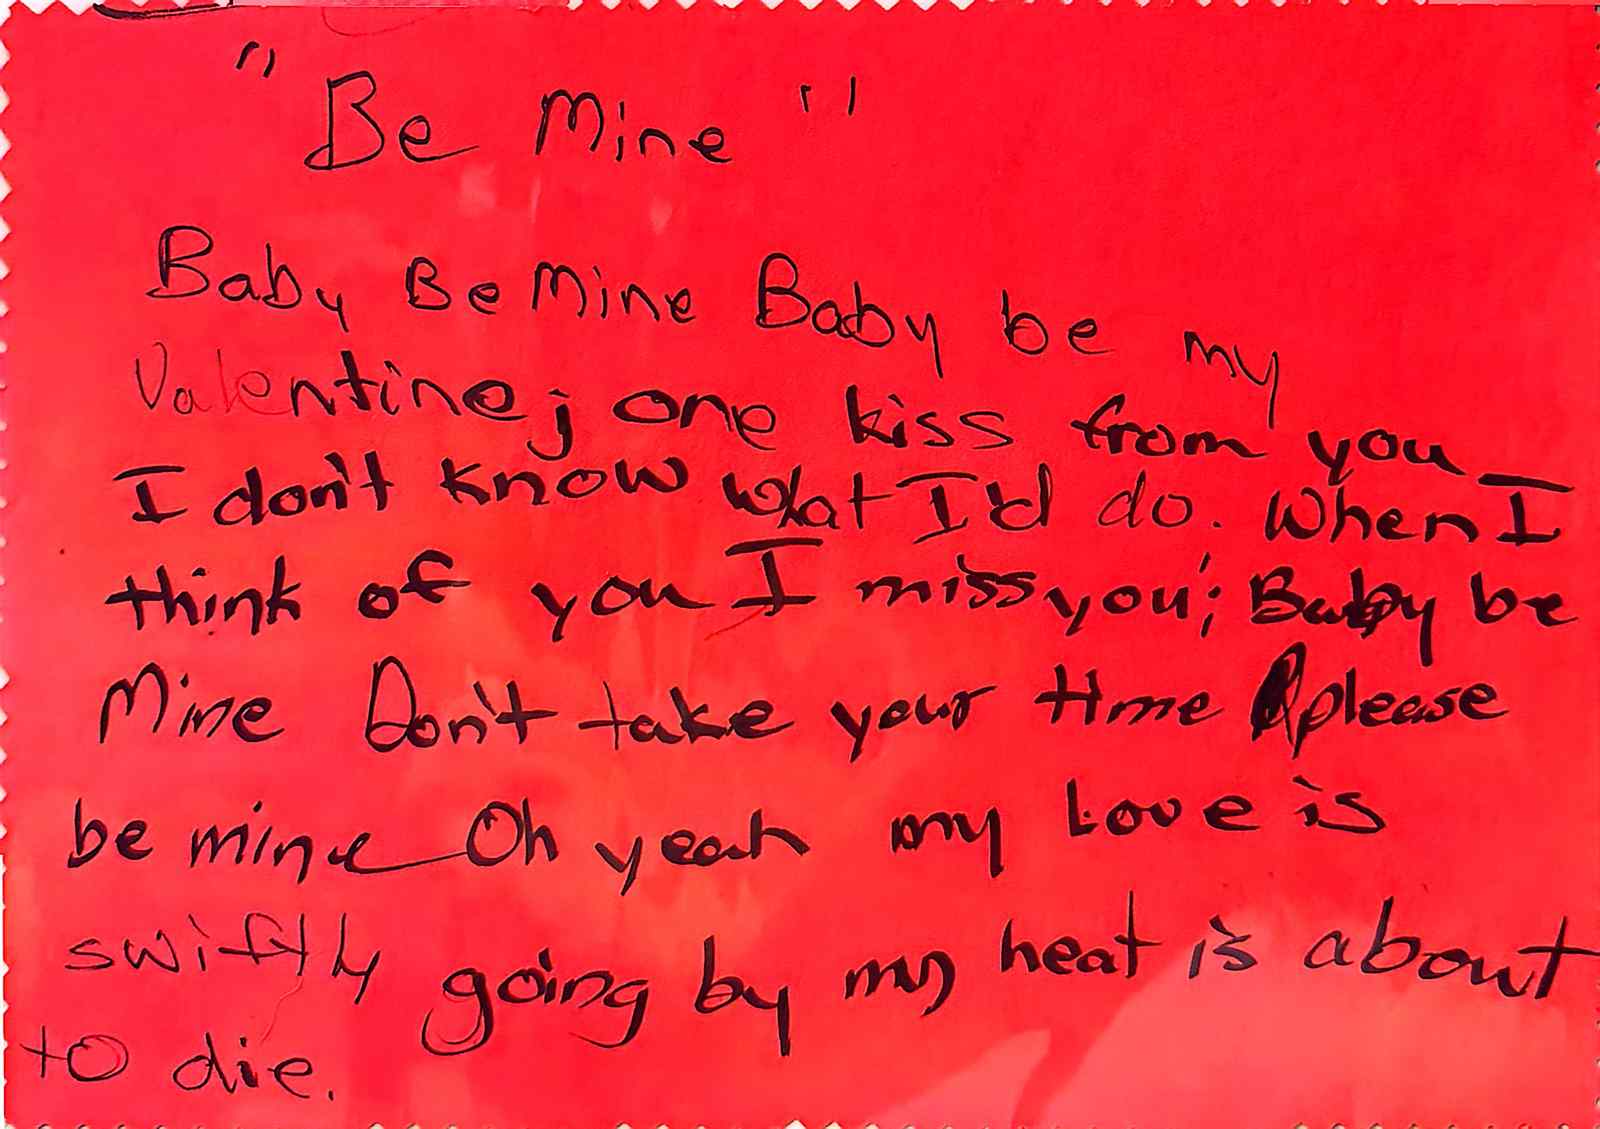 "Be Mine"
Baby Be Mine Baby be my
Valentine; one kiss from you
I don't know what I'd do. When I
think of you I miss you; Baby be
Mine Don't take your time please
be mine Oh yeah my Love is
swiftly going by my heat is about
to die.